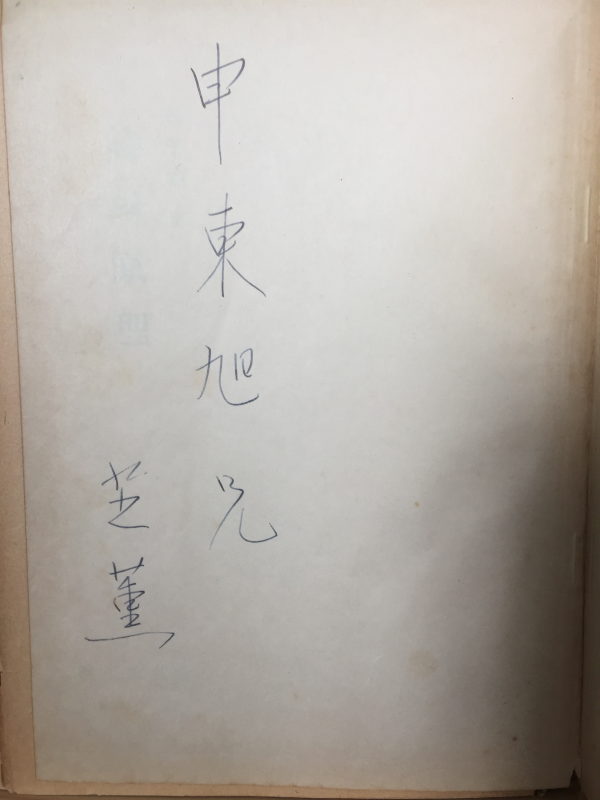 申東旭兄
芝薰